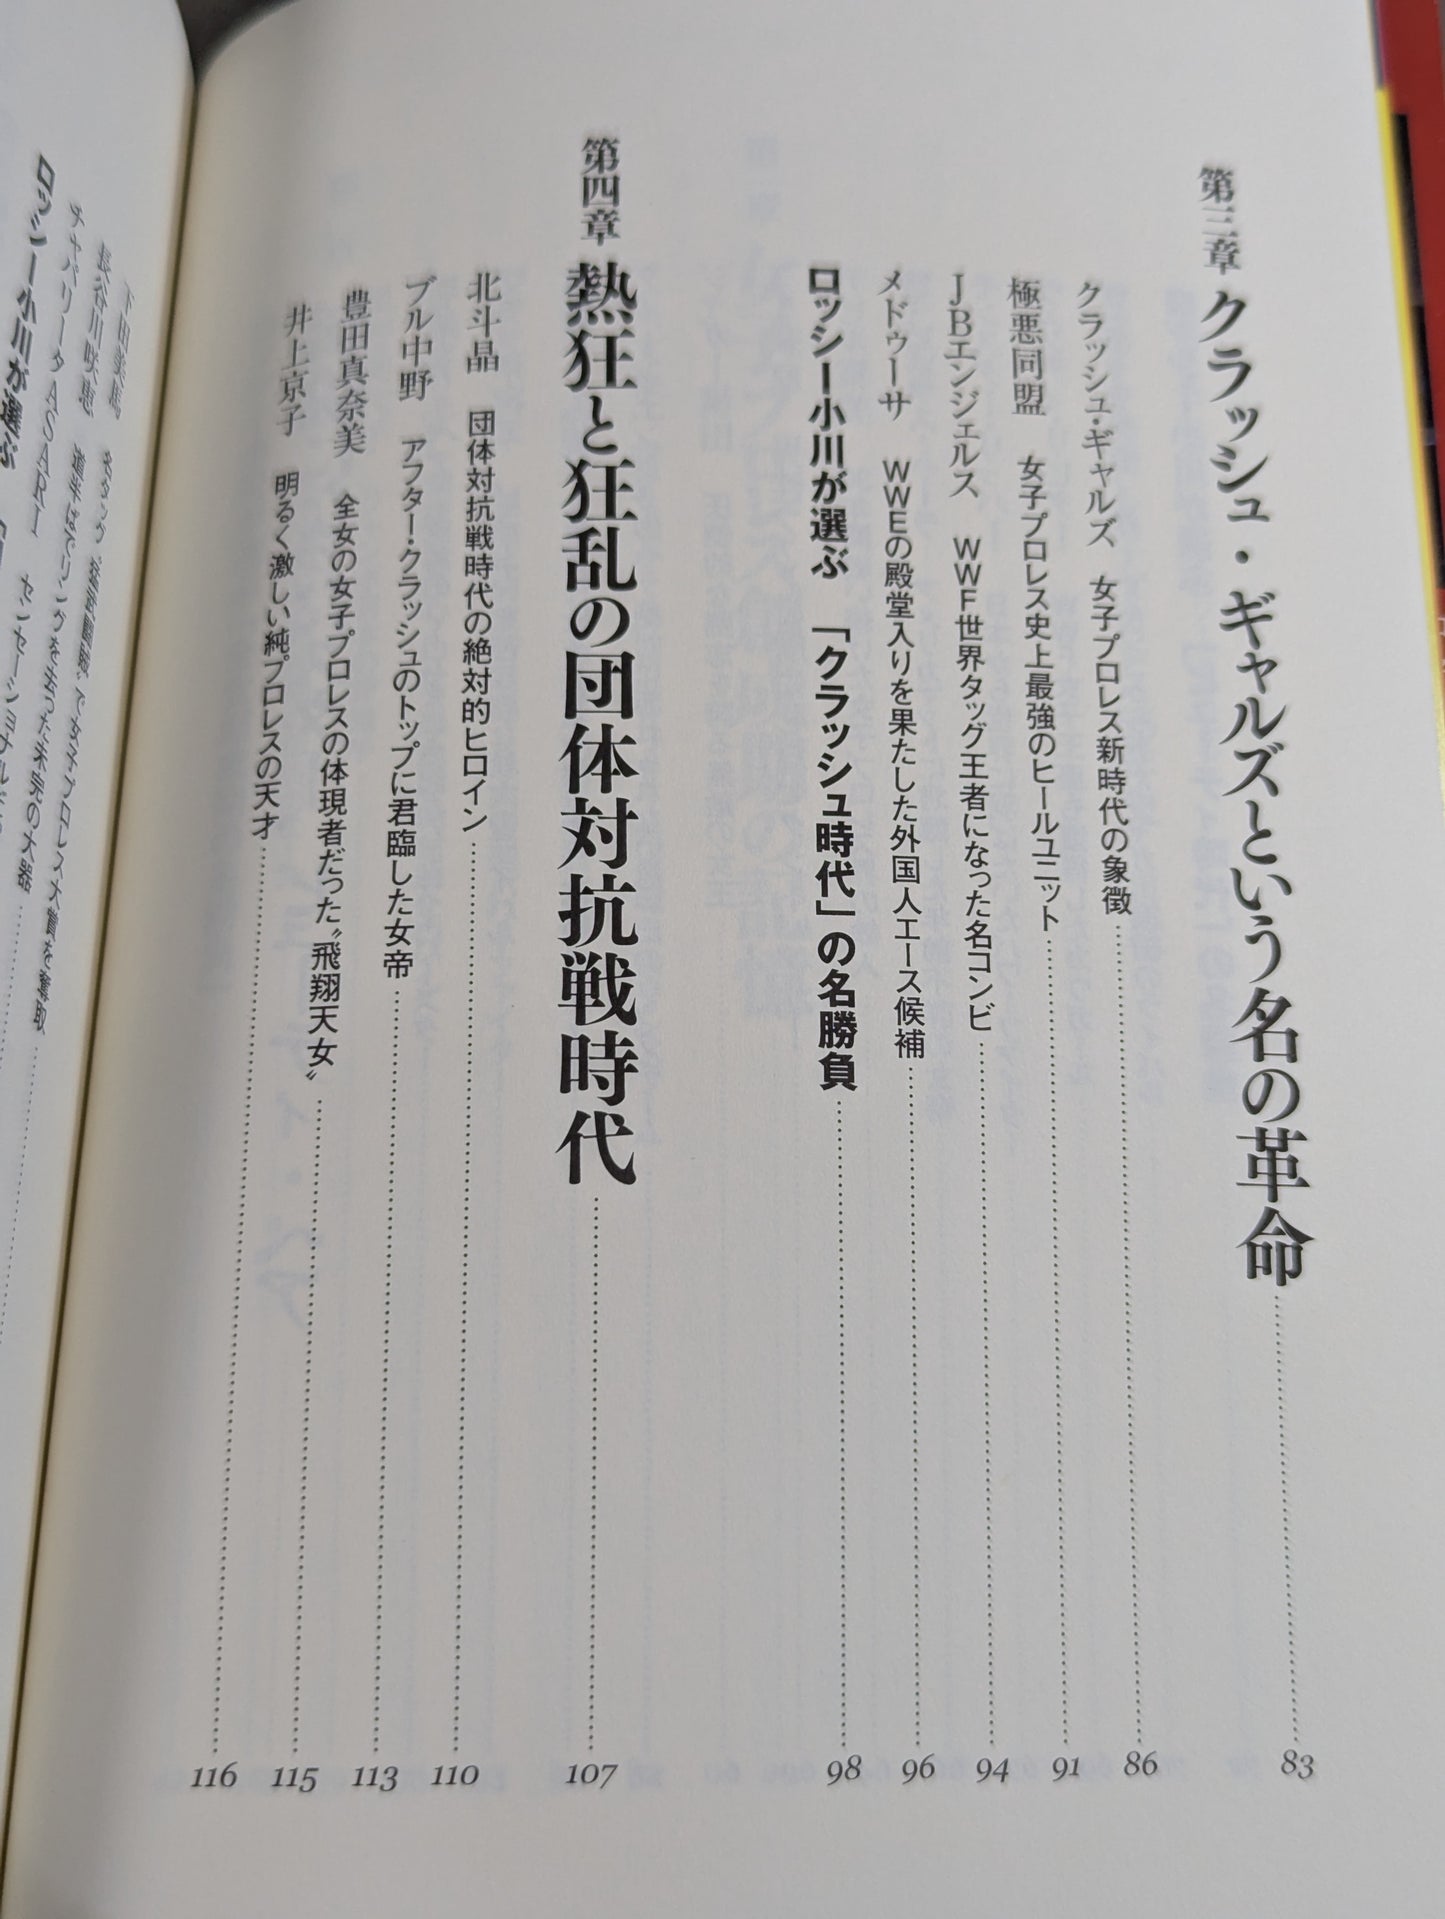 第三章 クラッシュ・ギャルズという名の革命 83
クラッシュ・ギャルズ 女子プロレス新時代の象徴 86
極悪同盟 女子プロレス史上最強のヒールユニット 91
JBエンジェルス WWF世界タッグ王者になった名コンビ 94
メドゥーサ WWEの殿堂入りを果たした外国人エース候補 96
ロッシー小川が選ぶ 「クラッシュ時代」の名勝負 98
第四章 熱狂と狂乱の団体対抗戦時代 107
北斗晶 団体対抗戦時代の絶対的ヒロイン 110
ブル中野 アフター・クラッシュのトップに君臨した女帝 113
豊田真奈美 全女の女子プロレスの体現者だった〝飛翔天女〟 115
井上京子 明るく激しい純プロレスの天才 116
下田美馬 で女子プロレス大賞を奪取
長谷川咲恵 道半ばでリングを去った未完の大器
チャパリータASARI センセーショナル
ロッシー小川が選ぶ